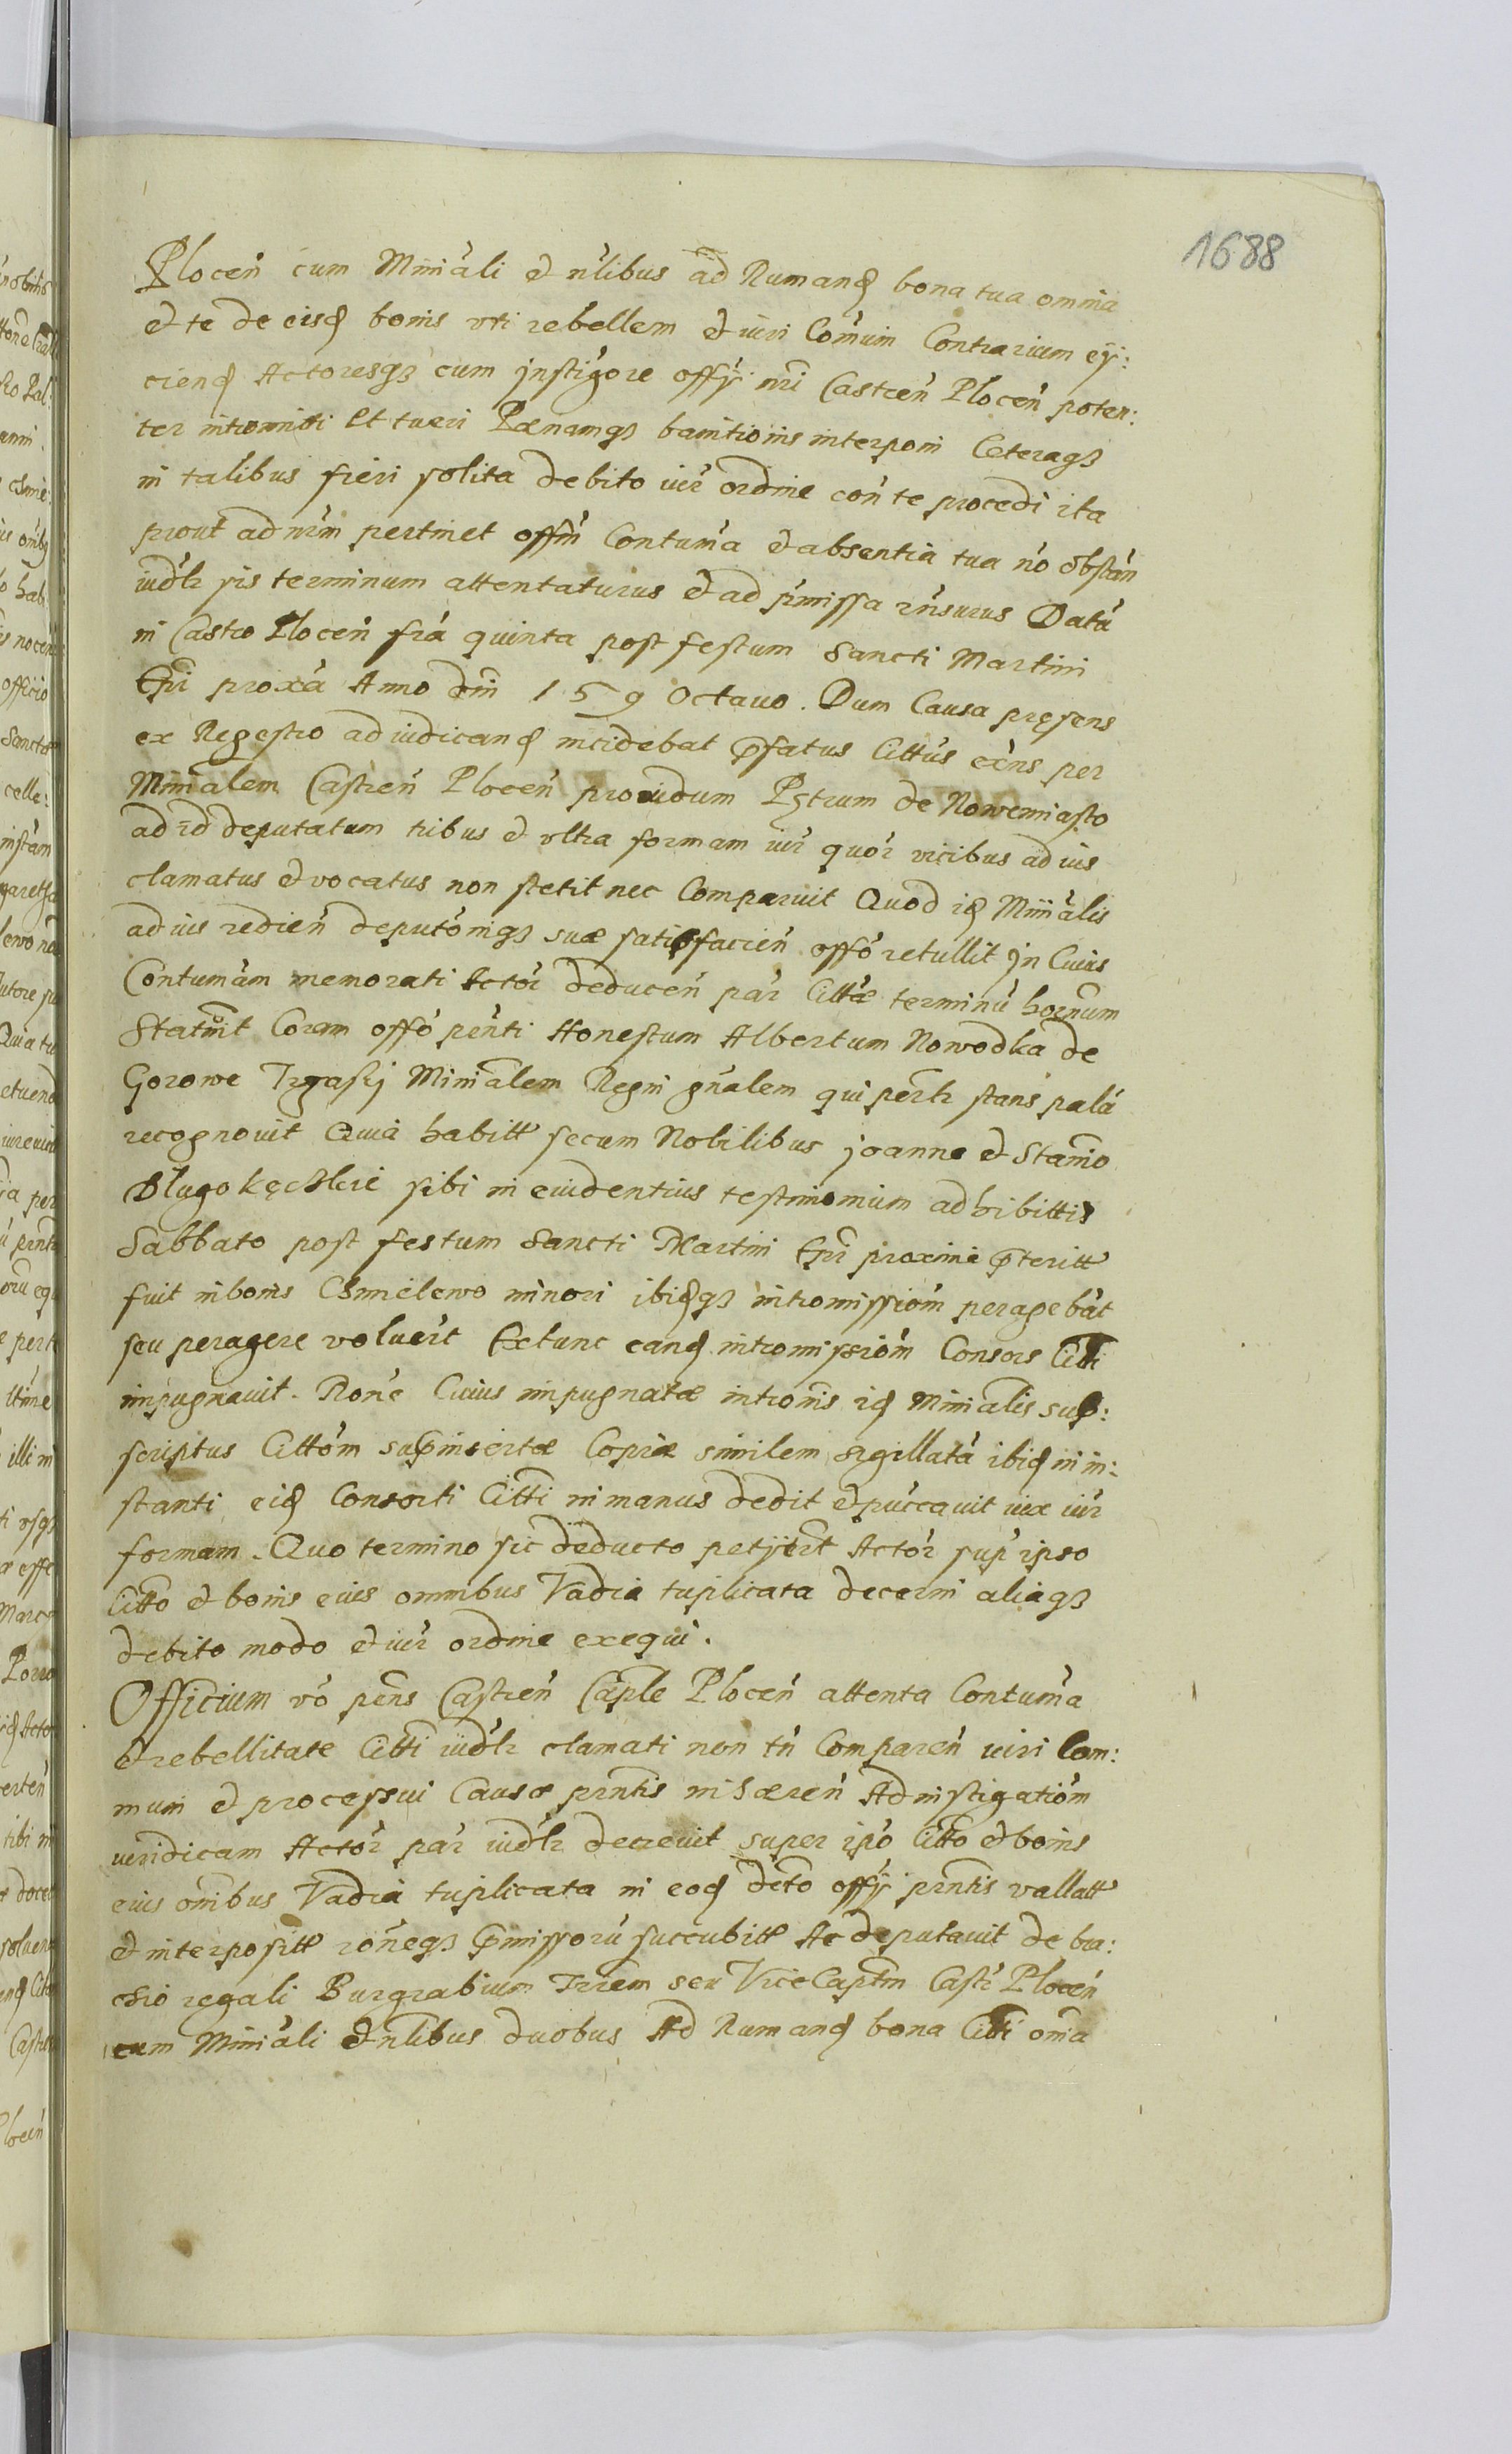 1688
Plocen̄ cum Miniāli et nōlibus ad Rumanđ bona tua omnia
et te de eisđ bonis vti rebellem et iuri Com̄uni Contrarium eÿ:
cienđ Actoresqз cum jnstig̃ore offÿ nr̄i Castren̄ Plocen̄ poten:
ter intromitti Et tueri Pænamqз banitionis interponi Ceteraqз
in talibus fieri solita debito iur̄ ordine con̄ te procedi ita
prout ad nr̄m pertinet offm̄ Contum̄a et absentia tua nō obstan̄
iud̄lr sis terminum attentaturus et ad p̄missa rn̄surus Datū
in Castro Plocen̄ fr̄a quinta post festum Sancti Martini
Ep̄i prox̄a Anno dn̄i 159 Octauo . Dum Causa pręsens
ex Regestro ad iudicanđ incidebat p̄fatus Citt̄us ex̄ns per
Miniālem Castren̄ Plocen̄ prouidum Pętrum de Nowemiasto
ad id deputatum tribus et vltra formam iur̄ quor̄ vicibus ad ius
clamatus et vocatus non stetit nec Comparuit Quod iđ Miniālis
ad ius redien̄ deputōniqз suæ satisfacien̄ offō retullit jn Cuius
Contumām memorati Actor̄ deducen̄ par̄ Citt̄æ terminū hor̄num
Statuit Coram offō pn̄ti Honestum Albertum Nowodka de
Gorowe Trgaskj Miniālem Regni gn̄alem qui per̄tr stans palā
recognouit Quia habitt̄ secum Nobilibus joanne et Stan̄io
Dlugokęckie sibi in euidentius testimonium adhibittis
Sabbato post festum Sancti Martini Ep̄i proxime p̄teritt̄
fuit in bonis Chmielewo minori ibiđqз intromissiōm peragebāt
seu peragere voluer̄t Extunc eanđ intromissiōm Consors Citt̄i
impugnauit . Rōne Cuius impugnatæ intrōnis iđ Miniālis sup:
scriptus Cittōm sup̄insertæ Copiæ similem sigillatā ibiđ in in:
stanti eiđ Consorti Citt̄i in manus dedit et p̄uccauit iux̄ iur̄
formam . Quo termino sic deducto petÿer̄t Actor̄ sup̄ ipso
Citt̄o et bonis eius omnibus Vadia tuplicata decerni aliaqз
debito modo et iur̄ ordine exequi .
Officium vō pn̄s Castren̄ Cap̄le Plocen̄ attenta Contum̄a
et rebellitate Citt̄i iud̄lr clamati non tn̄ Comparen̄ iuri Com:
muni et processui Causæ pn̄tis inhæren̄ Ad instigatiōm
iuridicam Actor̄ par̄ iud̄lr decreuit super ip̄o Citt̄o et bonis
eius om̄ibus Vadia tuplicata in eođ dct̄o offÿ pn̄tis vallatt̄
et interpositt̄ rōneqз p̄missorū succubitt̄ Ac deputauit de bra:
chio regali Burgrabium Tr̄rem seu Vice Capt̄m Castr̄ Plocen̄
cum Miniāli et nōlibus duobus Ad Rumanđ bona Citt̄i om̄ia